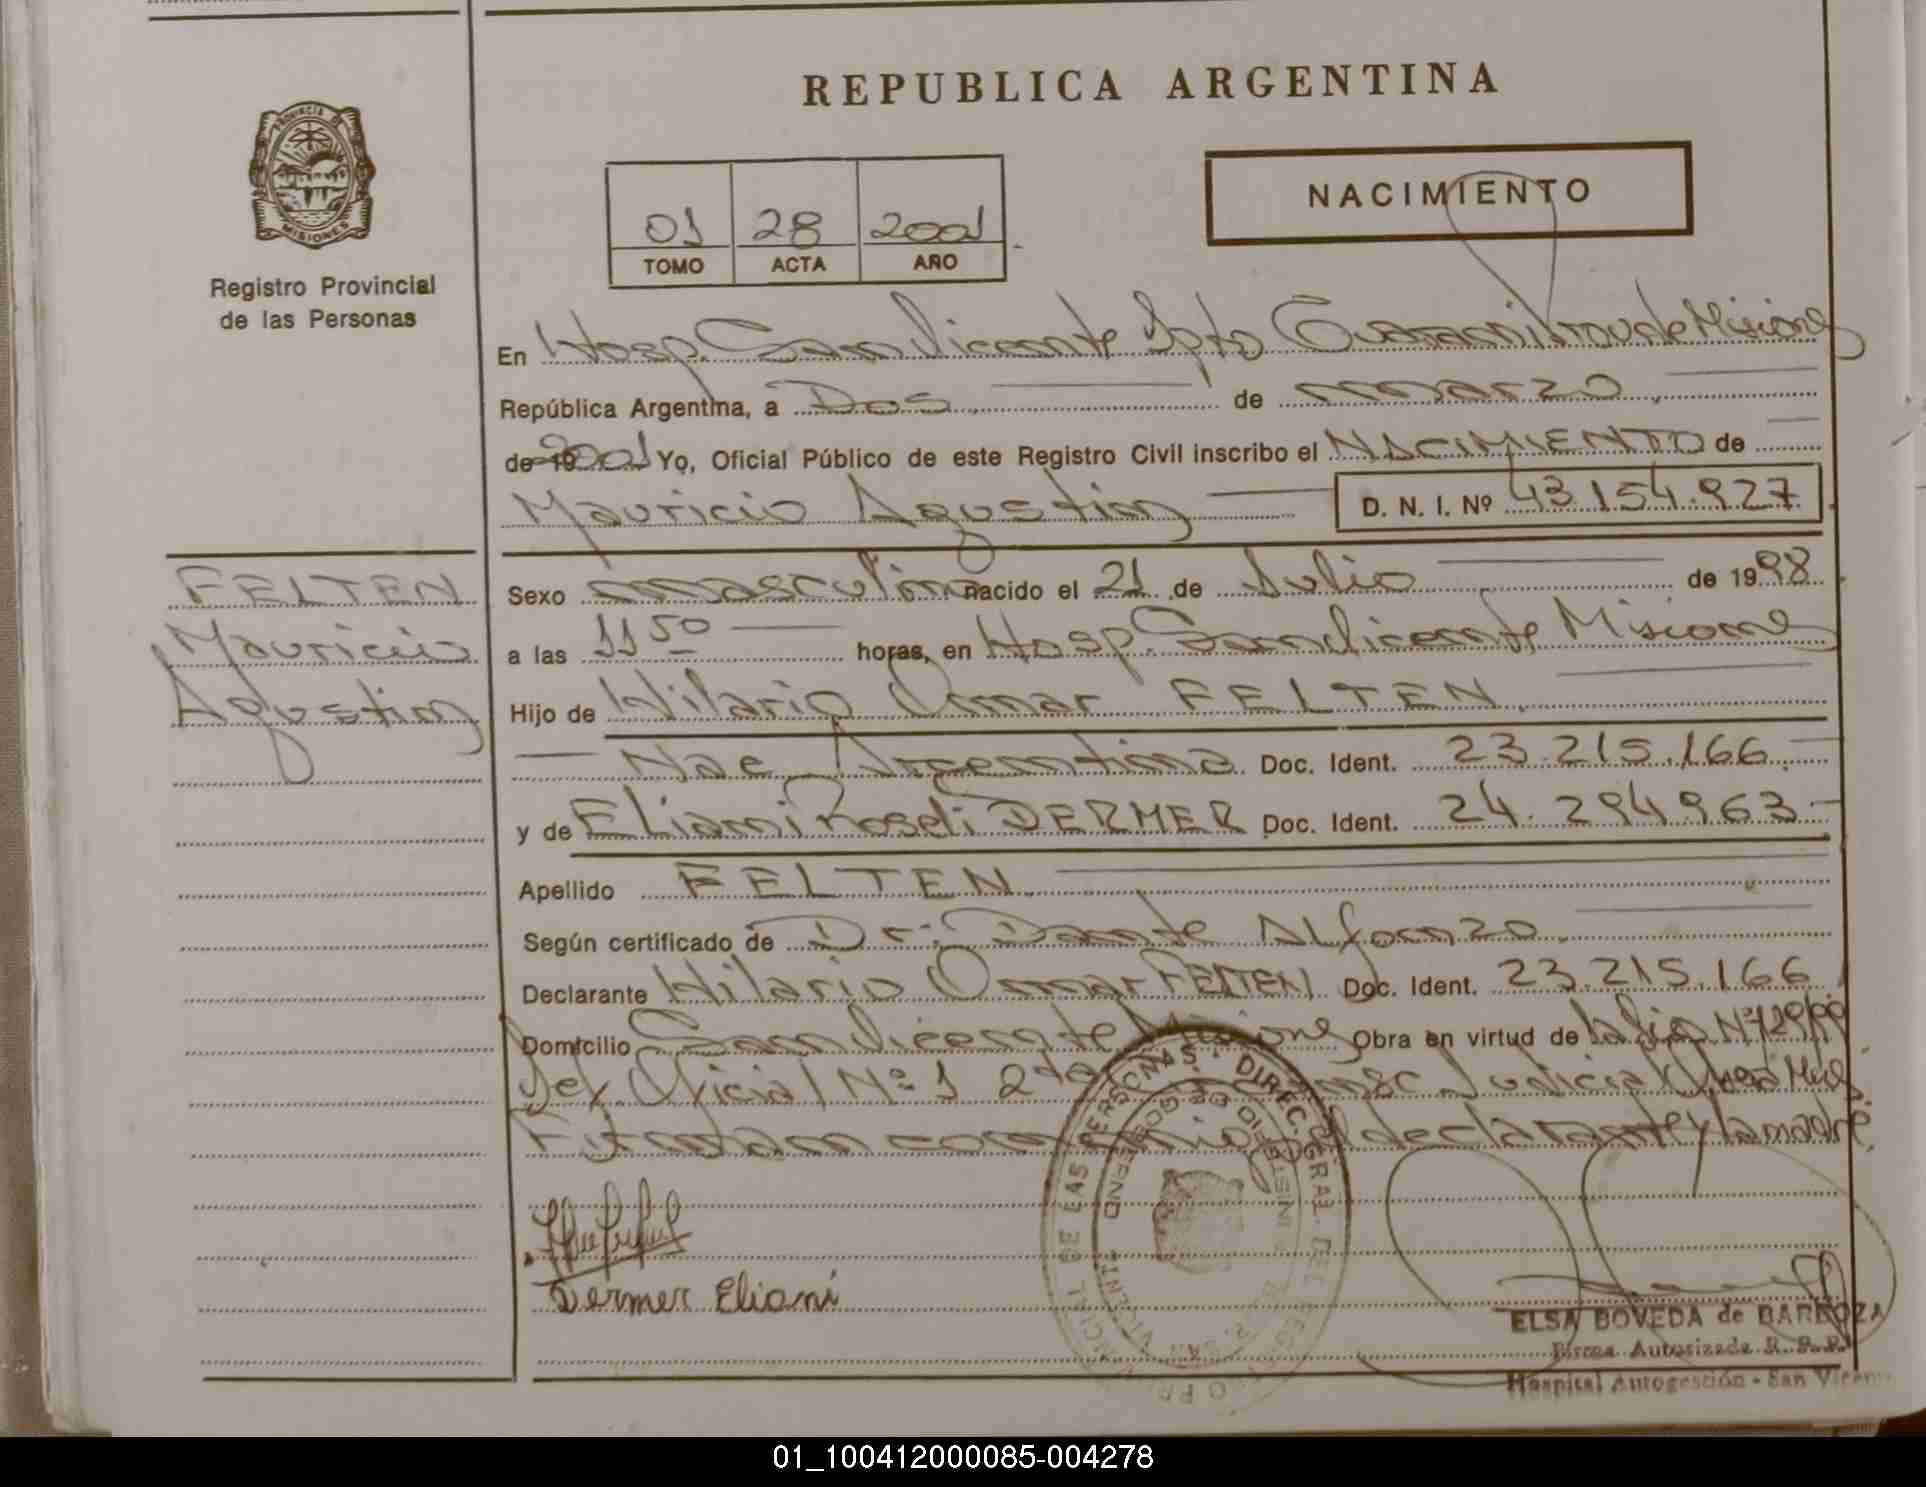 REPUBLICA ARGENTINA
PROVINCIA DE
MISIONES
Registro Provincial
de las Personas
NACIMIENTO
01 28 2001
TOMO ACTA AÑO
En Hosp. San Vicente Dpto Guaraní Prov de Misiones
República Argentina, a Dos de marzo
de 19 2001 Yo, Oficial Público de este Registro Civil inscribo el NACIMIENTO de
Mauricio Agustin D. N. I. Nº 43.154.927
FELTEN
Mauricio
Agustin
Sexo masculino nacido el 21 de Julio de 1998
a las 11 50 horas, en Hosp. San Vicente Misiones
Hijo de Hilario Omar FELTEN
Nac Argentina Doc. Ident. 23.215.166
y de Eliani Roseli DERMER Doc. Ident. 24.294.963
Apellido FELTEN
Según certificado de Dr: Dante Alfonzo
Declarante Hilario Omar FELTEN Doc. Ident. 23.215.166
Domicilio San Vicente Misiones Obra en virtud de
Def. Oficial Nº 1 2da Judicial
Firman conmigo el declarante y la madre
Dermer Eliani
ELSA BOVEDA de BARBOZA
Firma Autorizada R. P. P.
Hospital Autogestión - San Vicente
01_100412000085-004278